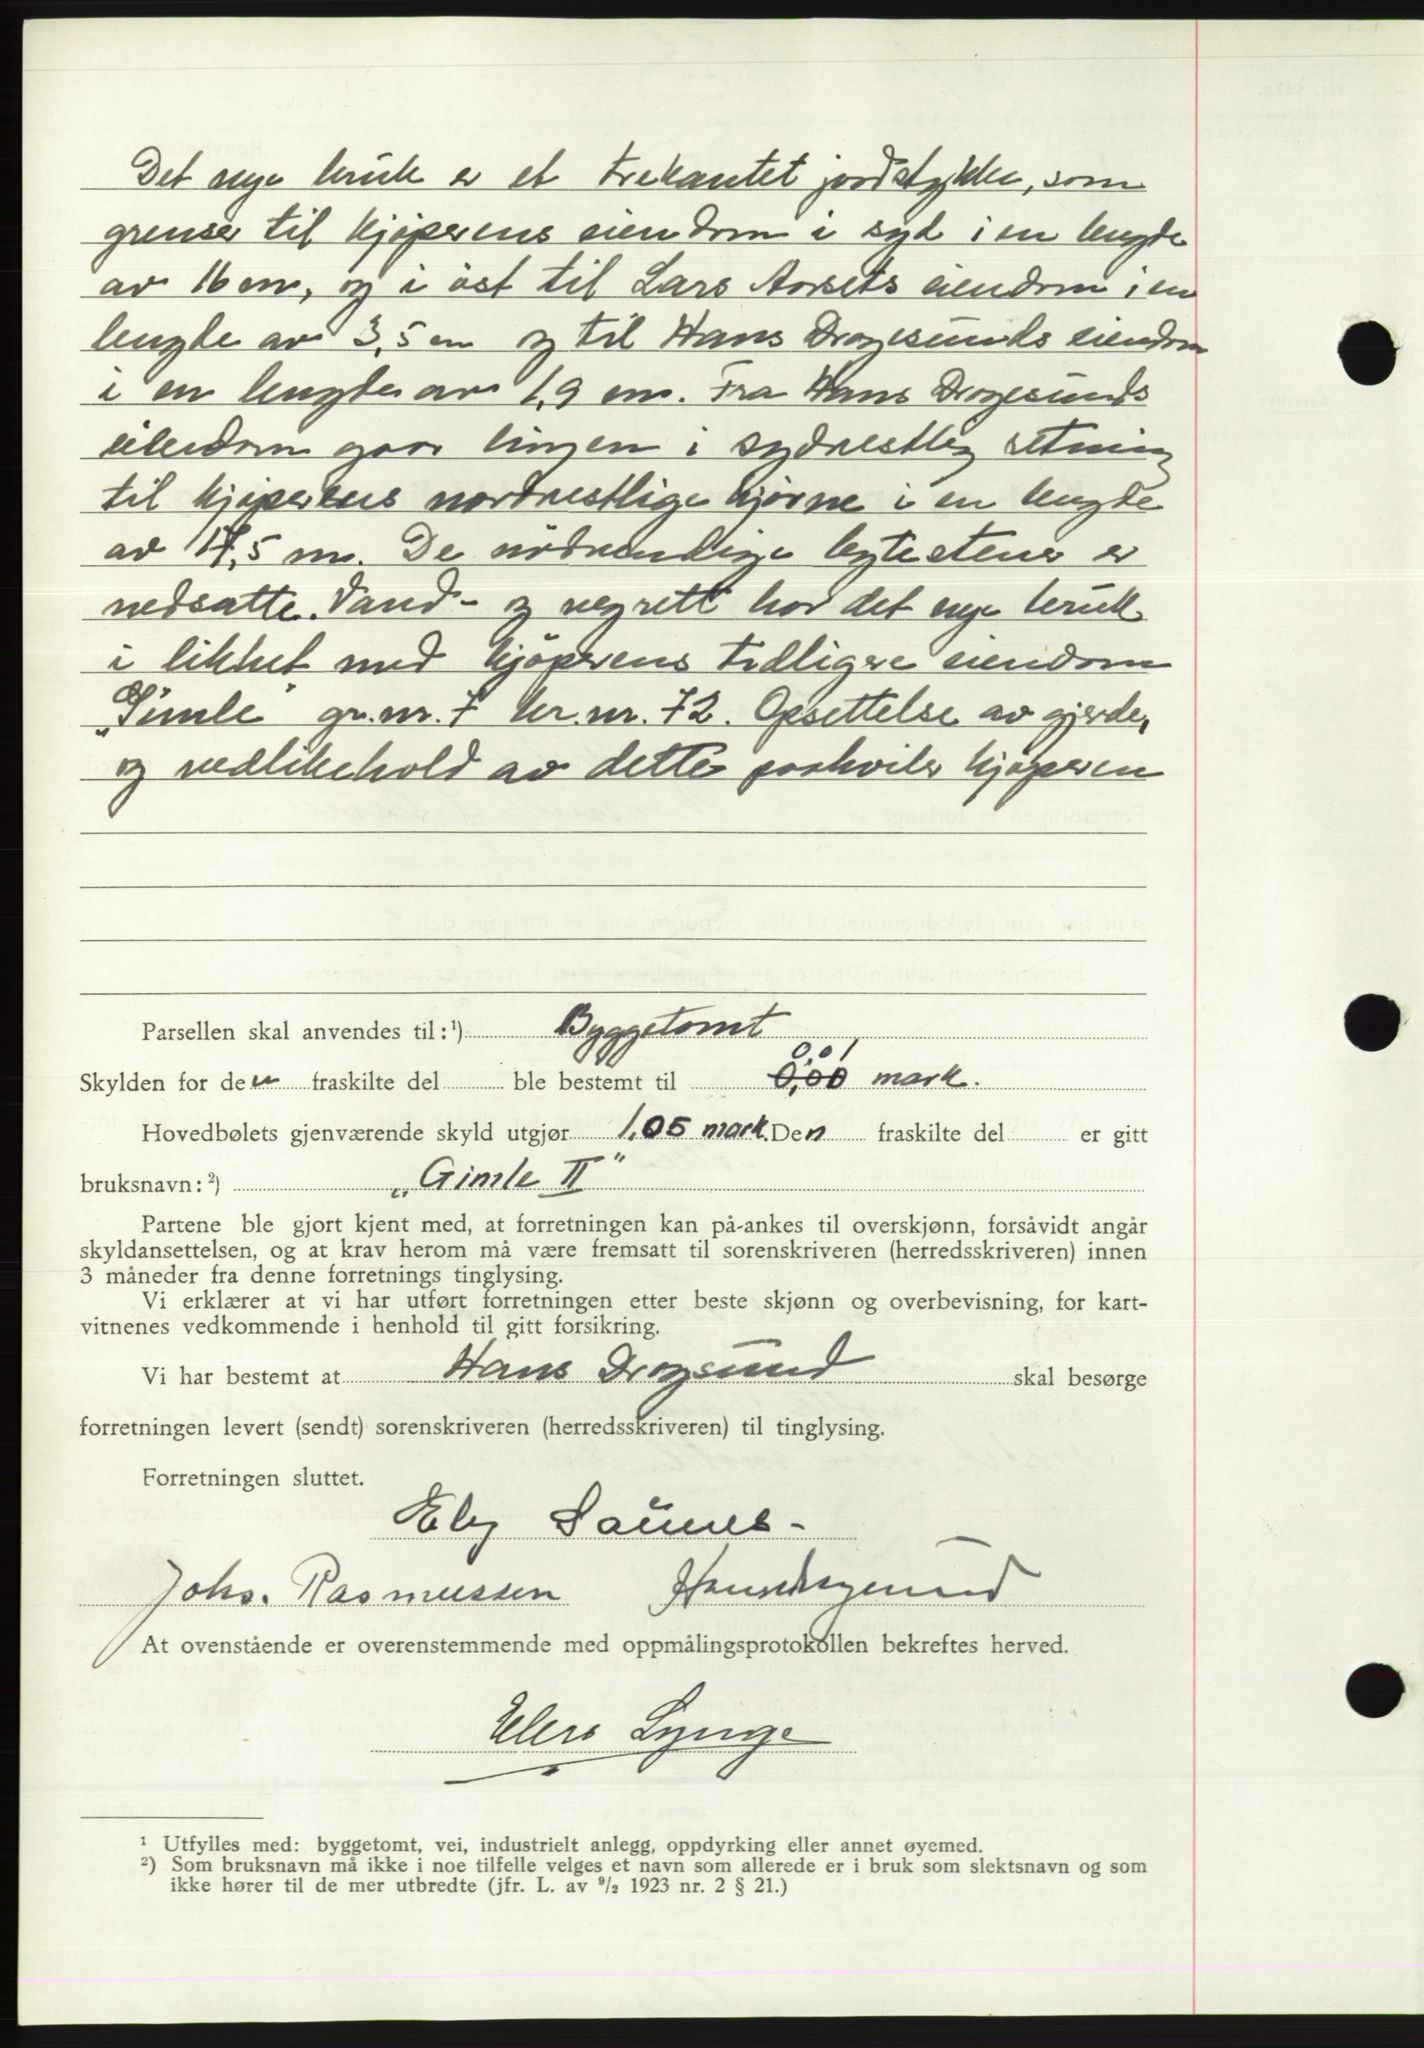 Det nye bruk er et trekantet jordstykke, som
grenser til kjøperens eiendom i syd i en lengde
av 16 m, og i øst til Lars Aarsets eiendom i en
lengde av 3,5 m og til Hans Drogesunds eiendom
i en lengde av 1,9 m. Fra Hans Drogesunds
eiendom gaar linjen i sydvestlig retning
til kjøperens nordvestlige hjørne i en lengde
av 17,5 m. De nødvendige bytestener er
nedsatte. Vand- og vegrett har det nye bruk
i likhet med kjøperens tidligere eiendom
„Gimle" gr.nr. 7 br.nr. 72. Opsettelse av gjerde,
og vedlikehold av dette paahviler kjøperen
Parsellen skal anvendes til: ¹) Byggetomt
0,01
Skylden for den fraskilte del ble bestemt til 0,00 mark.
Hovedbølets gjenværende skyld utgjør 1,05 mark. Den fraskilte del er gitt
bruksnavn: ²) „Gimle II"
Partene ble gjort kjent med, at forretningen kan på-ankes til overskjønn, forsåvidt angår
skyldansettelsen, og at krav herom må være fremsatt til sorenskriveren (herredsskriveren) innen
3 måneder fra denne forretnings tinglysing.
Vi erklærer at vi har utført forretningen etter beste skjønn og overbevisning, for kart-
vitnenes vedkommende i henhold til gitt forsikring.
Vi har bestemt at Hans Drogsund skal besørge
forretningen levert (sendt) sorenskriveren (herredsskriveren) til tinglysing.
Forretningen sluttet.
Johs. Rasmussen Hans Drogesund
At ovenstående er overenstemmende med oppmålingsprotokollen bekreftes herved.
Elers Lynge
¹ Utfylles med: byggetomt, vei, industrielt anlegg, oppdyrking eller annet øyemed.
²) Som bruksnavn må ikke i noe tilfelle velges et navn som allerede er i bruk som slektsnavn og som
ikke hører til de mer utbredte (jfr. L. av ⁹/₂ 1923 nr. 2 § 21.)